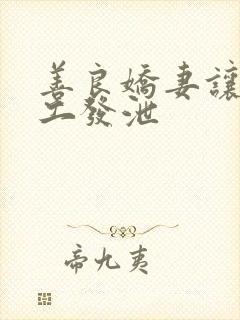 善良嬌妻讓
工發泄
帝九夷